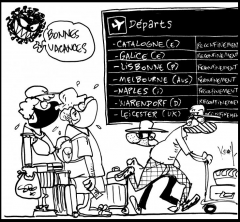 BONNES
VACANCES
Départs
-CATALOGNE (E) RECONFINEMENT
-GALICE (E) RECONFINEMENT
-LISBONNE (P) RECONFINEMENT
-MELBOURNE (AUS) RECONFINEMENT
-NAPLES (I) RECONFINEMENT
-WARENDORF (D) RECONFINEMENT
-LEICESTER (UK) RECONFINEMENT